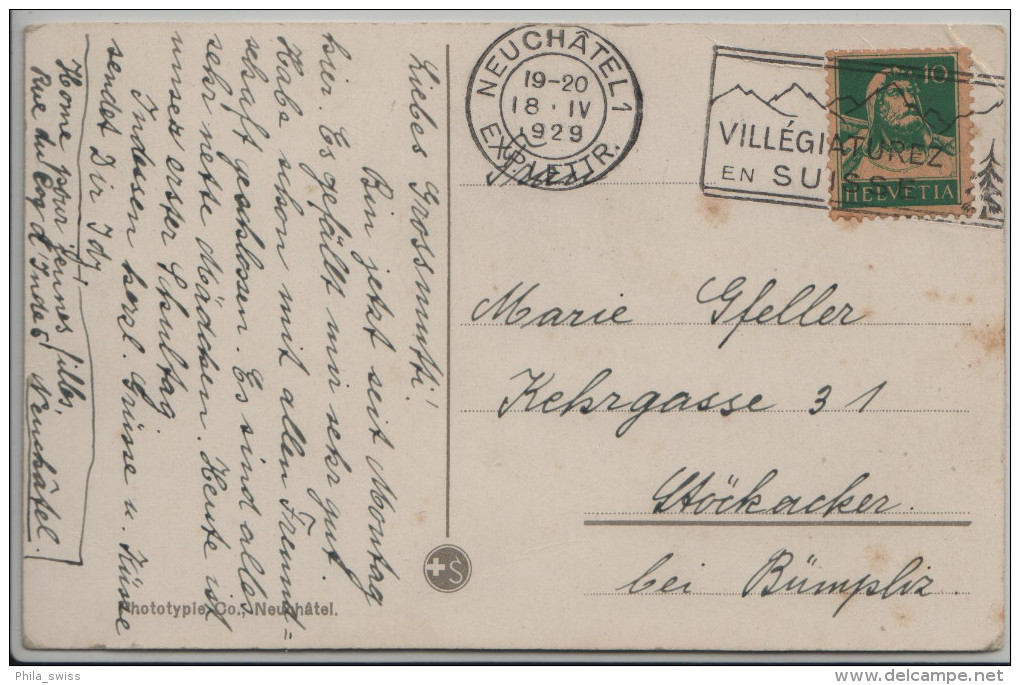 Liebes Grossmutti!
Bin jetzt seit Montag
hier. Es gefällt mir sehr gut
Habe schon mit allen Freund=
schaft geschlossen. Es sind alles
sehr nette Mädchen. Heute ist
unser erster Schultag.
Indessen herzl. Grüsse u. Küsse
sendet Dir Idy!
Home pour jeunes filles,
Rue du Coq d'Indes
Neuchâtel.
Phototypie Co., Neuchâtel.
S
NEUCHÂTEL 1
19-20
18·IV
1929
EXP. LETTR.
VILLÉGIATUREZ
EN SUISSE
10
HELVETIA
Frau
Marie Gfeller
Kehrgasse 31
Stöckacker.
bei Bümpliz
Phila_swiss
delcampe.net